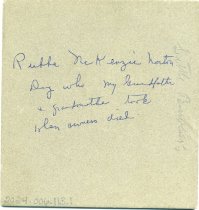 Rubba McKenzie Norton
Dog who my Grandfather
& grandmother took
when owners died
2024.006.113.1